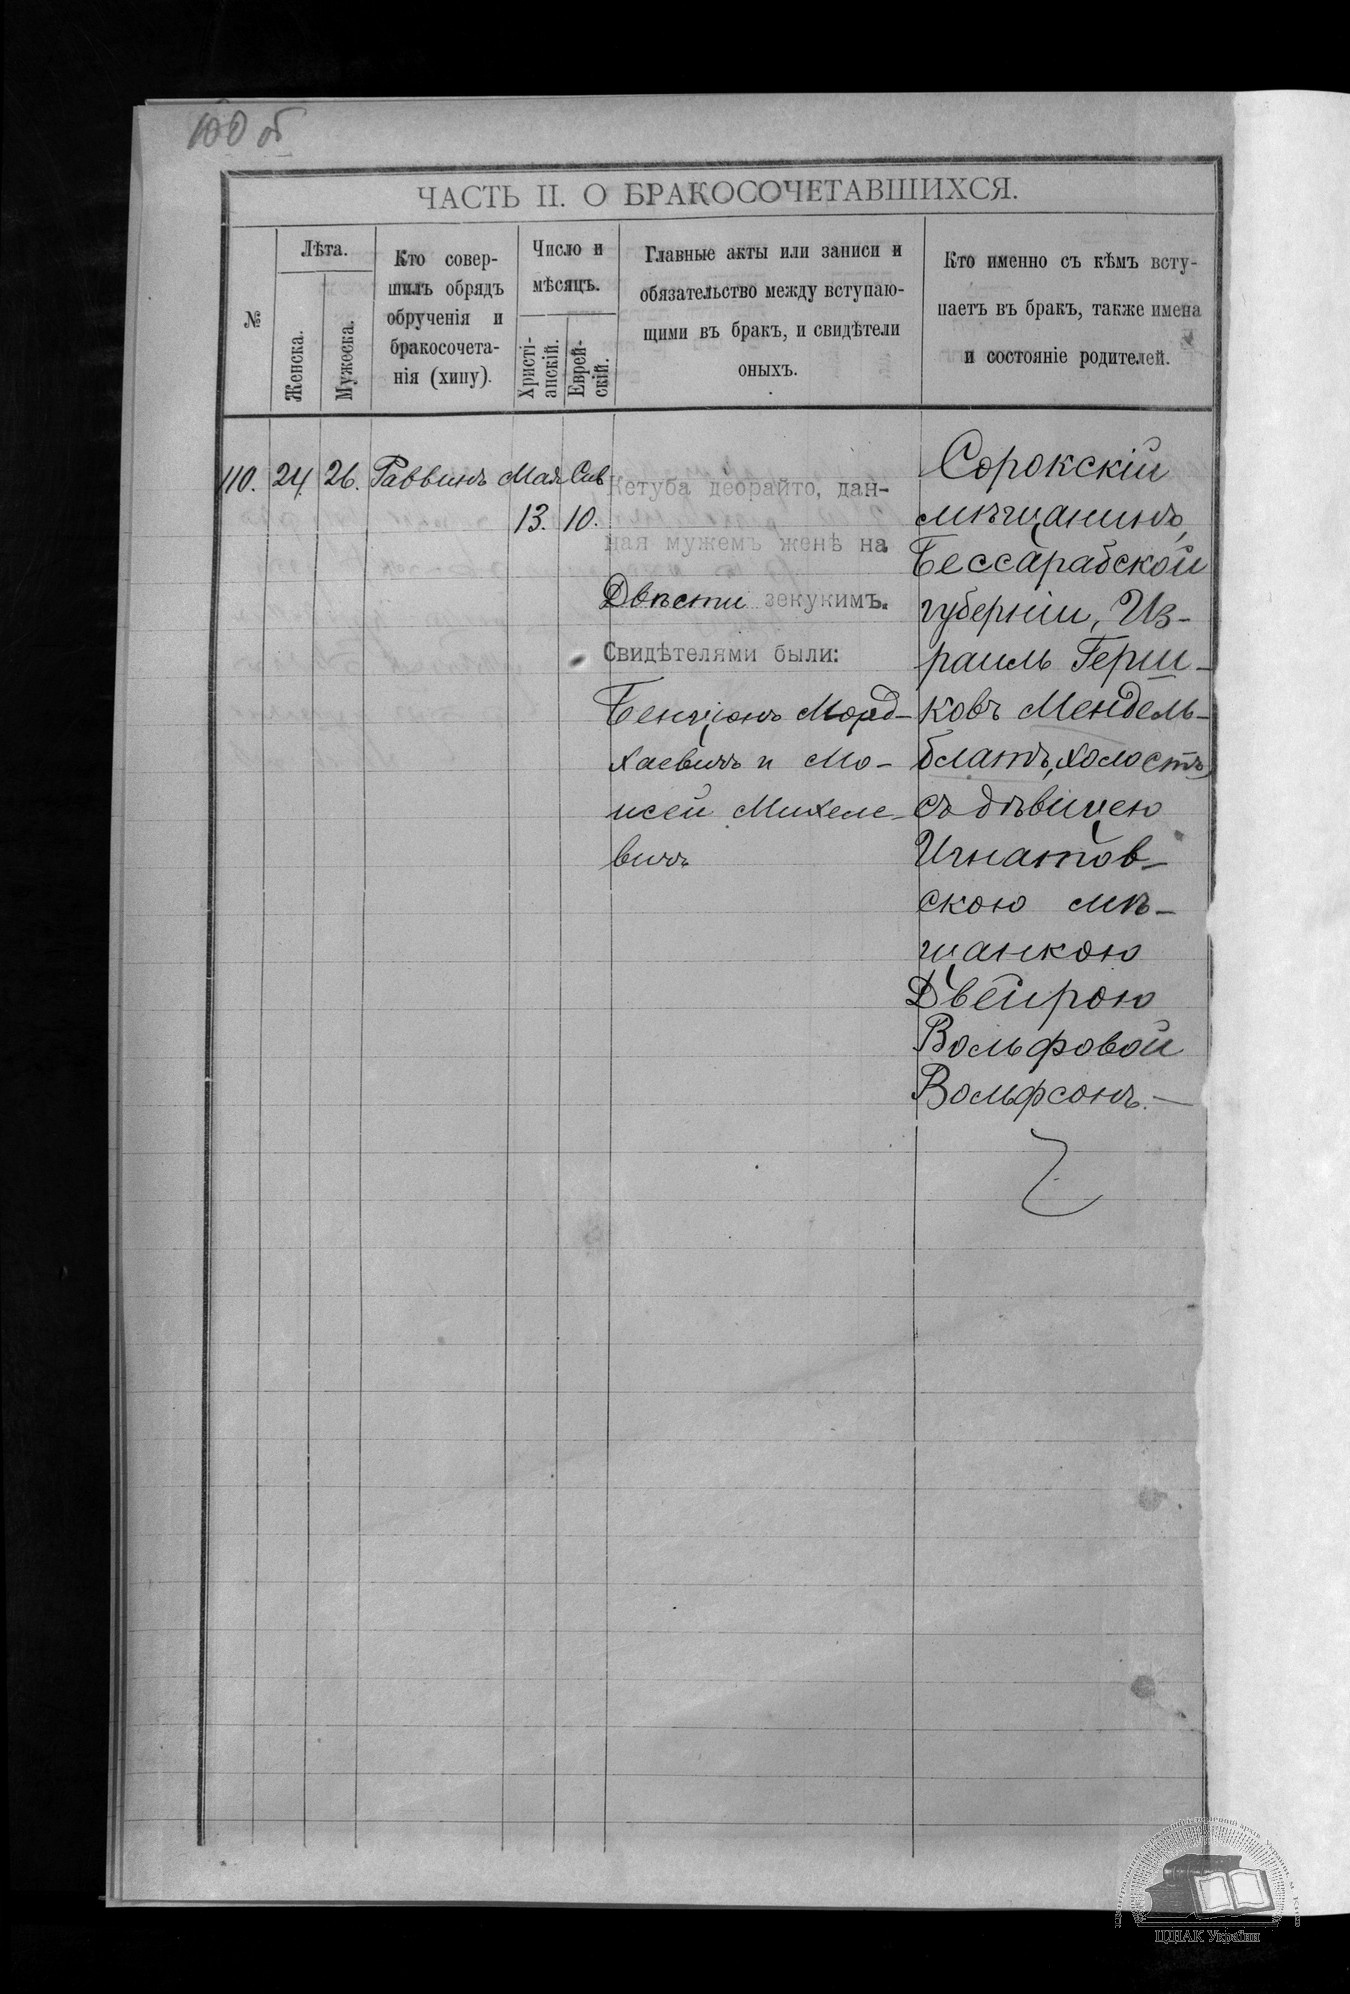 100 об
ЧАСТЬ II. О БРАКОСОЧЕТАВШИХСЯ.
№
Лѣта.
Женска.
Мужеска.
Кто совер-
шилъ обрядъ
обрученія и
бракосочета-
нія (хипу).
Число и
мѣсяцъ.
Христі-
анскій.
Еврей-
скій.
Главные акты или записи и
обязательство между вступаю-
щими въ бракъ, и свидѣтели
оныхъ.
Кто именно съ кѣмъ всту-
паетъ въ бракъ, также имена
и состояніе родителей.
110.
24.
26.
Раввинъ
Мая
13.
Сив
10.
Кетуба деорайто, дан-
ная мужемъ женѣ на
Двѣсти зекукимъ.
Свидѣтелями были:
Бенціонъ Морд-
хаевичъ и Мо-
исей Михеле-
вичъ
Сорокскій
мѣщанинъ,
Бессарабской
губерніи, Из-
раиль Герш-
ковъ Мендель-
блатъ, холостъ,
съ дѣвицею
Игнатов-
скою мѣ-
щанкою
Двейрою
Вольфовой
Вольфсонъ. —
ЦДІАК України